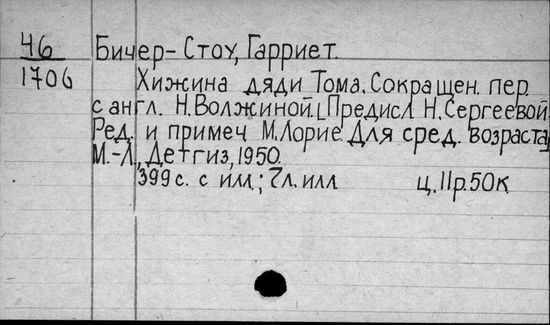 46 Бичер-Стоу, Гарриет.
1706 Хижина дяди Тома. Сокращен. пер.
с англ. Н. Волжиной. [Предисл. Н. Сергеевой.
Ред. и примеч М. Лорие. Для сред. возраста]
М.-Л., Детгиз, 1950.
399 с. с илл; 7 л. илл ц. 11 р. 50 к